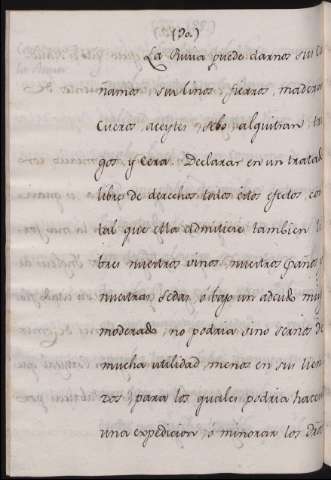 (90.)
La Rusia puede darnos sus Ca
namos sus linos fierros, maderas
cueros, aceytes, sebo, alquitran, tri
gos y cera. Declarar en un tratado
libre de derechos todos estos efectos, con
tal que ella admitiese tambien li
bres nuestros vinos nuestros panos y
nuestras sedas, ó bajo un adeudo muy
moderado, no podria sino sernos de
mucha utilidad, menos en sus lien
zos, para los quales podria hacer
una expedicion, ó minorar los dros